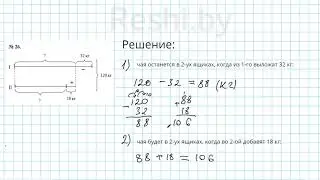 Reshi.by
№ 26.
Решение:
? 32 кг
I
120 кг
II
? 18 кг
1) чая останется в 2-ух ящиках, когда из 1-го выложат 32 кг:
120 - 32 = 88 (кг)
-120 +88
32 18
88 106
2) чая будет в 2-ух ящиках, когда во 2-ой добавят 18 кг:
88 + 18 = 106